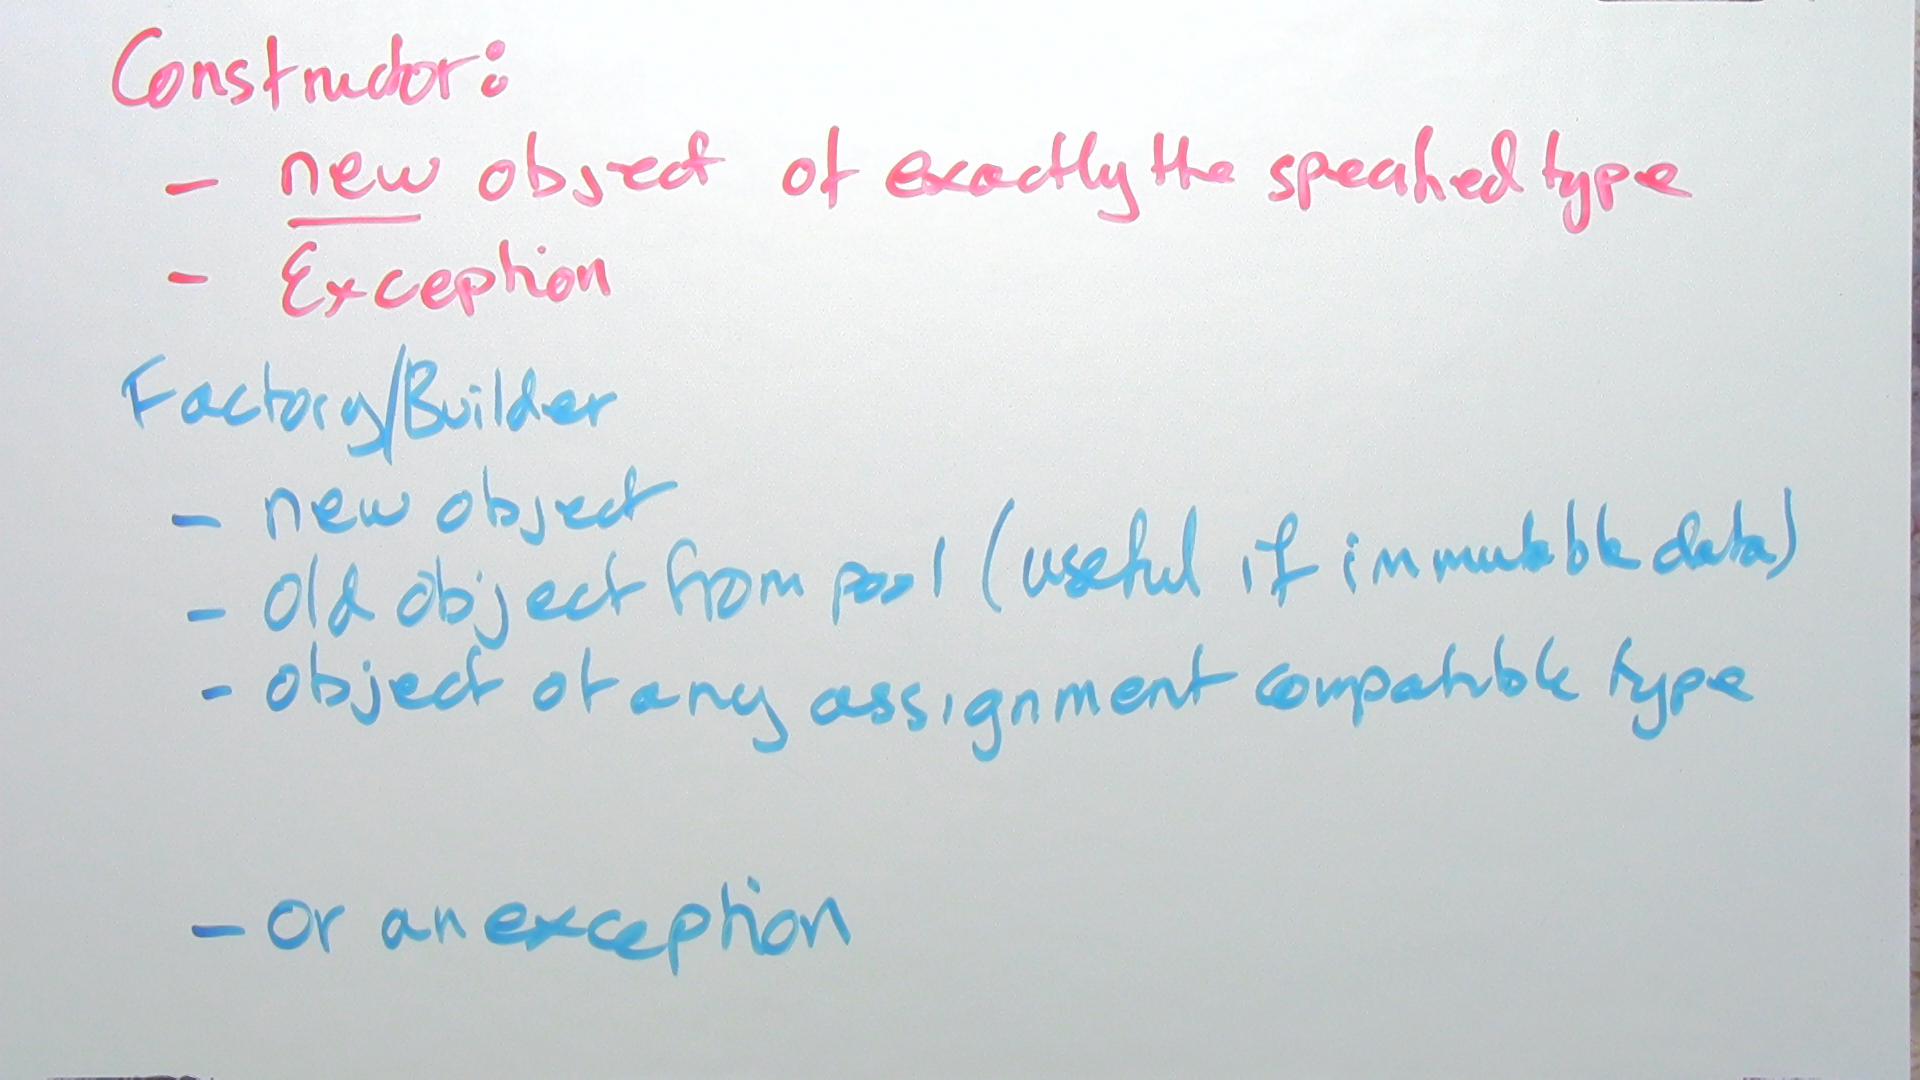 Constructor:
- new object of exactly the specified type
- Exception
Factory/Builder
- new object
- old object from pool (useful if immutable data)
- object of any assignment compatible type
- or an exception